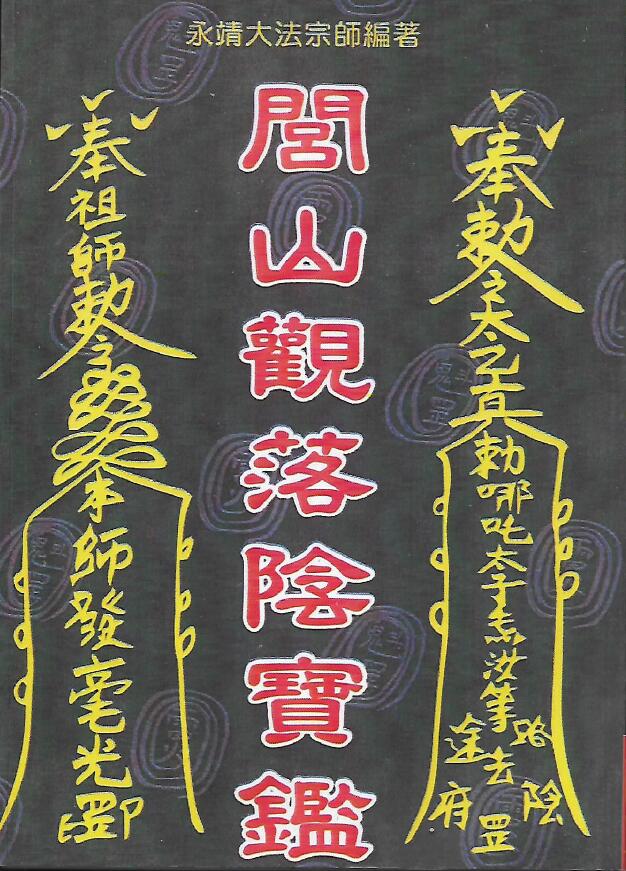 永靖大法宗師編著
奉勅
勅哪吒太子
路途去陰府罡
閭山觀落陰寶鑑
奉祖師勅
本師發毫光